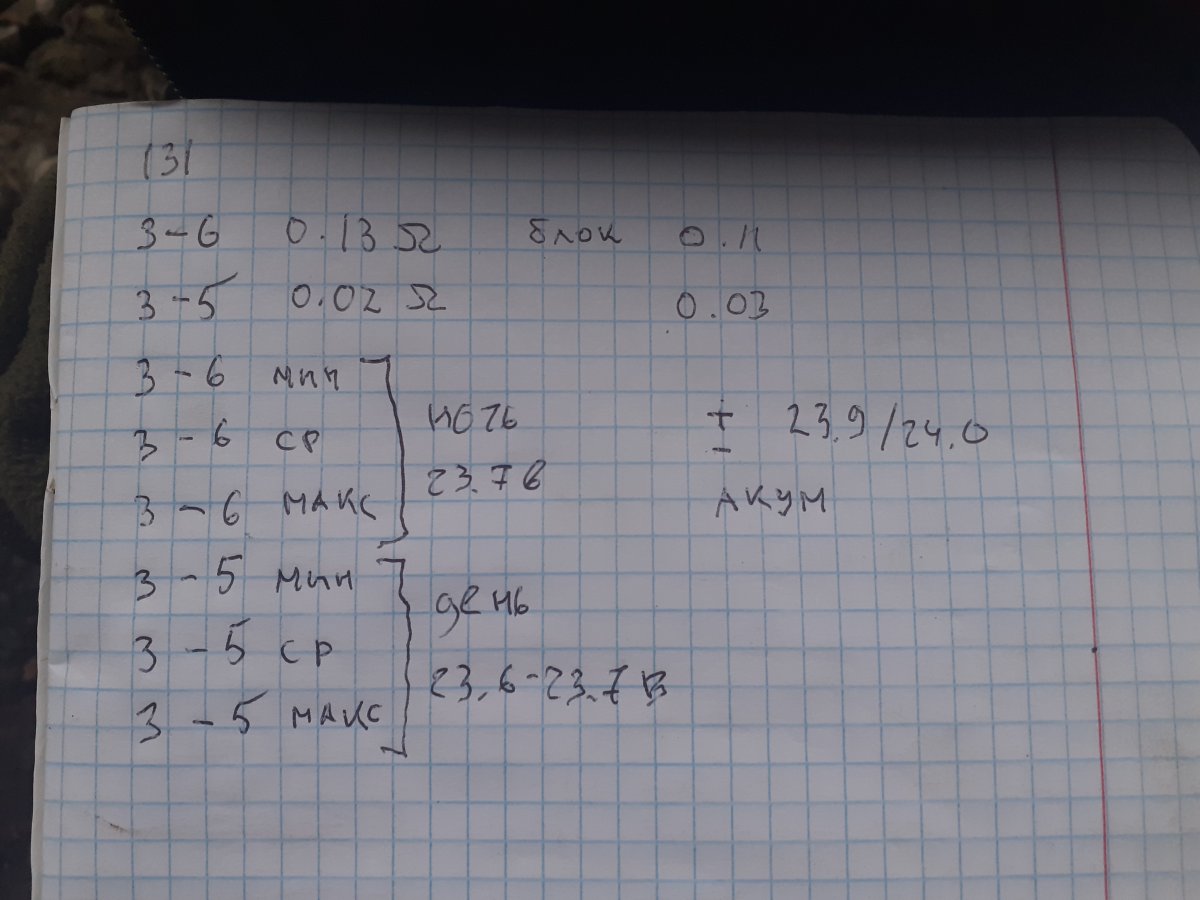 131
3-6 0.13 Ω блок 0.11
3-5 0.02 Ω 0.03
3-6 мин
3-6 ср
3-6 макс
ночь
23.7 в
+
- 23.9/24.0
АКУМ
3-5 мин
3-5 ср
3-5 макс
день
23.6-23.7 В